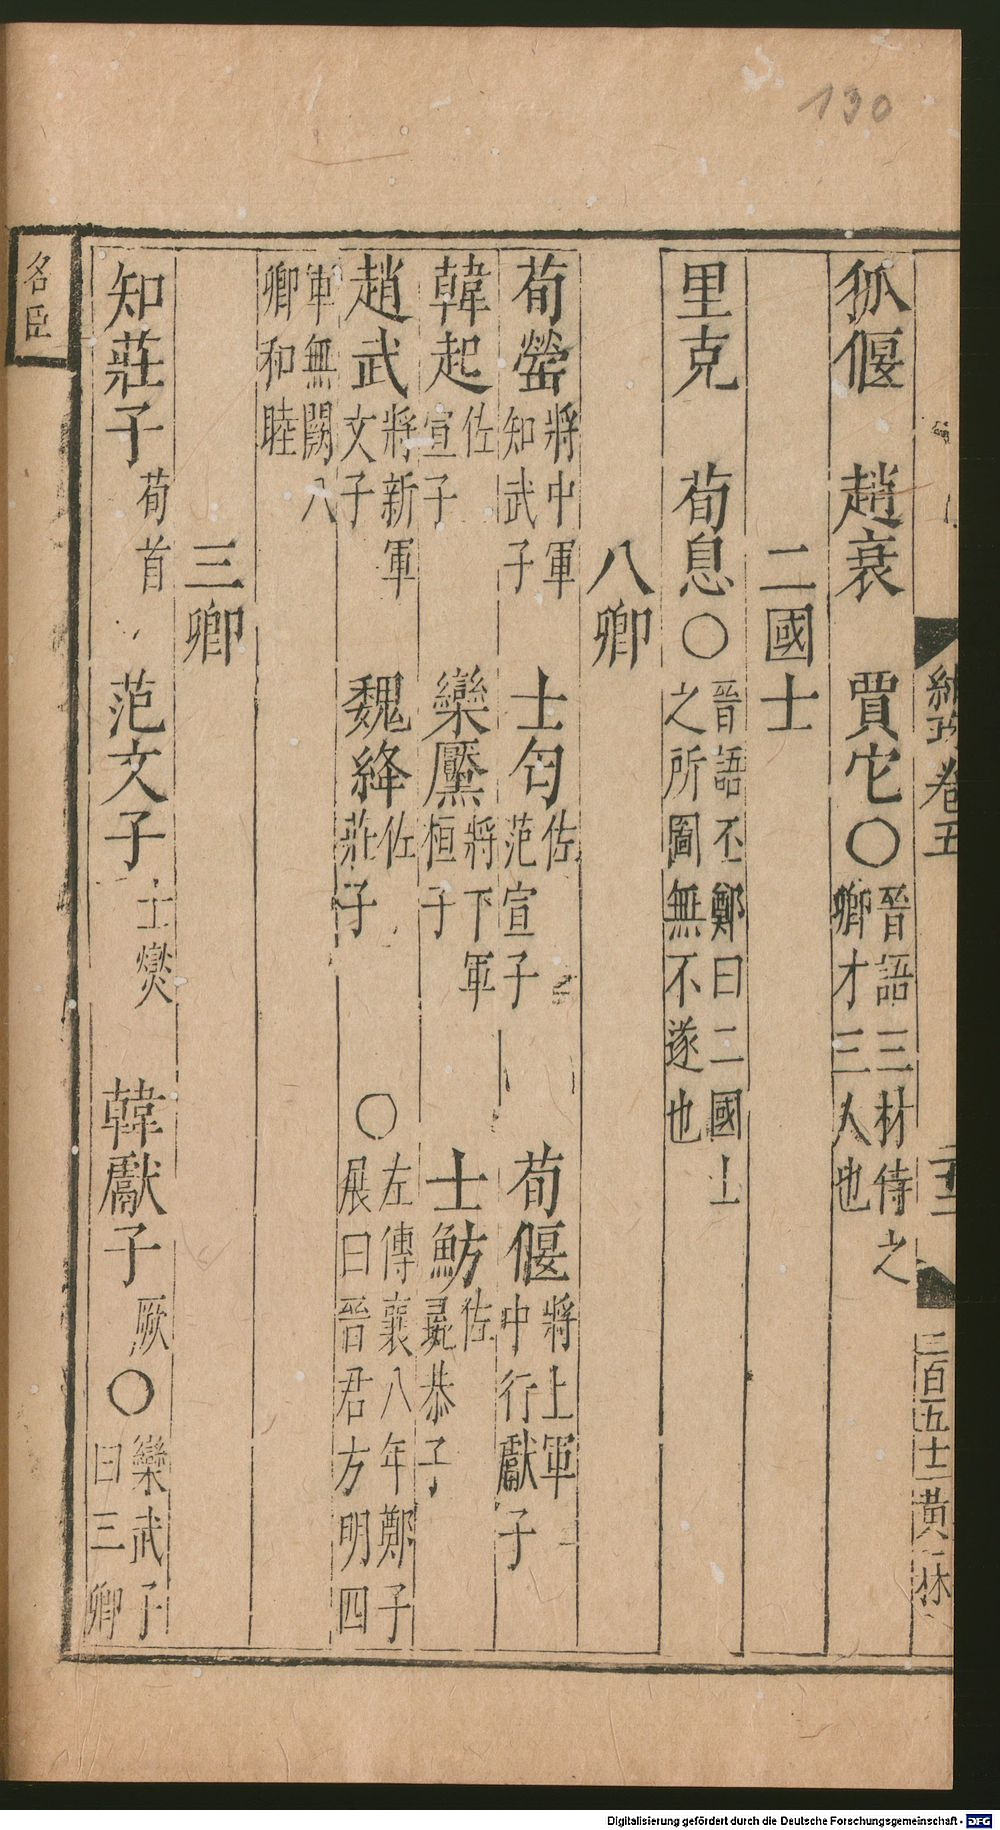 130
狐偃　趙衰　賈它○晉語三材侍之
卿才三人也
二國士
里克　荀息○晉語丕鄭曰二國士
之所圖無不遂也
八卿
荀罃將中軍
知武子
士匄佐
范宣子
荀偃將上軍
中行獻子
韓起佐
宣子
欒黶將下軍
桓子
士魴佐
彘恭子
趙武將新軍
文子
魏絳佐
莊子
○左傳襄八年鄭子
展曰晉君方明四
軍無闕八
卿和睦
三卿
知莊子荀首　范文子士燮　韓獻子厥○欒武子
曰三卿
名臣
卷五
黃林
Digitalisierung gefördert durch die Deutsche Forschungsgemeinschaft - DFG